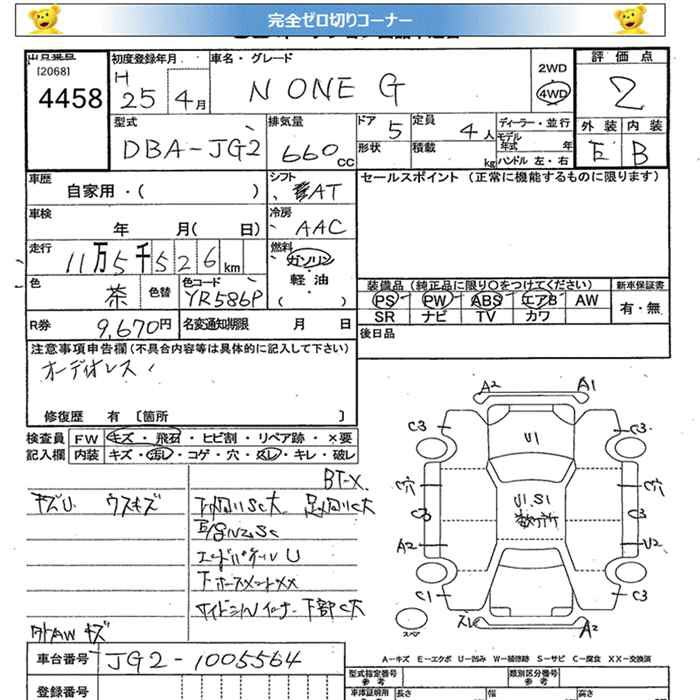 完全ゼロ切りコーナー
[2068]
4458
初度登録年月
H 25年 4月
車名・グレード
N ONE G
2WD
4WD
評価点
2
外装 内装
E B
型式
DBA-JG2
排気量
660 cc
ドア 5
形状
定員 4人
積載 kg
ディーラー・並行
モデル年式 年
ハンドル 左・右
車歴
自家用・( )
シフト
AT
セールスポイント (正常に機能するものに限ります)
車検
年 月( 日)
冷房
AAC
走行
11万5千526km
燃料
ガソリン
軽油
( )
色
茶
色替
色コード
YR586P
装備品 (純正品に限り○をつけてください)
PS PW ABS エアB AW
SR ナビ TV カワ
新車保証書
有・無
R券 9,670円
名変通知期限 月 日
後日品
注意事項申告欄(不具合内容等は具体的に記入して下さい)
オーディオレス
修復歴 有 [箇所 ]
検査員記入欄
FW キズ・飛石・ヒビ割・リペア跡・×要
内装 キズ・汚レ・コゲ・穴・スレ・キレ・破レ
BT-X
キズU ウスキズ
下回りSC大 足回りC大
エンドパネルU
下ホースメントxx
サイドシルインナー下部C大
外AW キズ
車台番号 JG2-1005564
登録番号
A2 A1
C3 C3
U1
C穴 C穴
U1 S1
C3 C3
A2 U2
C1 C3
スレ A2
スペア
A-キズ E-エクボ U-凹み W-補修跡 S-サビ C-腐食 XX-交換済
型式指定番号 参考
類別区分番号 参考
車庫証明用 長さ 幅 高さ